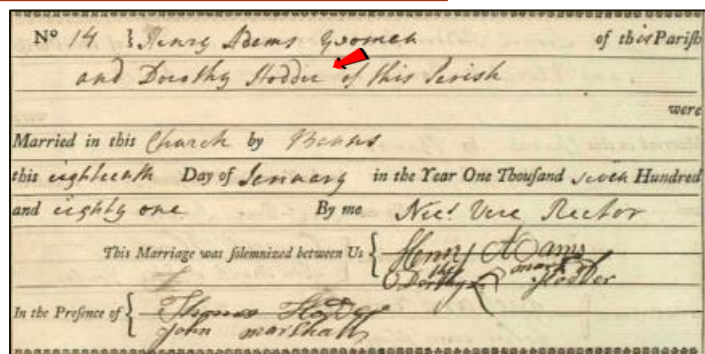 No 14 } Henry Adams yooman of this Parish
and Dorothy Hodder of this Perish
were
Married in this Church by Banns
this eighteenth Day of Jenuary in the Year One Thousand seven Hundred
and eighty one By me Nics Vere Rector
This Marriage was solemnized between Us { Henry Adams
the mark
Dorthy Hodder
In the Presence of { Thomas Hodder
John marshall